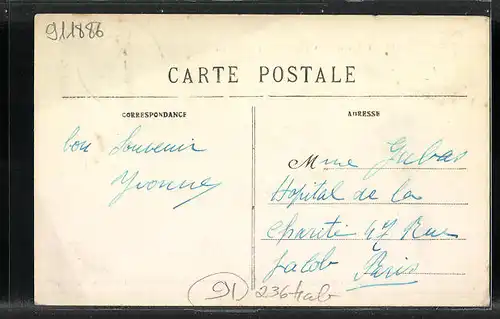 911886
CARTE POSTALE
CORRESPONDANCE
ADRESSE
bon Souvenir
Yvonne
Mme
Hopital de la
Charité 47 Rue
Jacob Paris
91